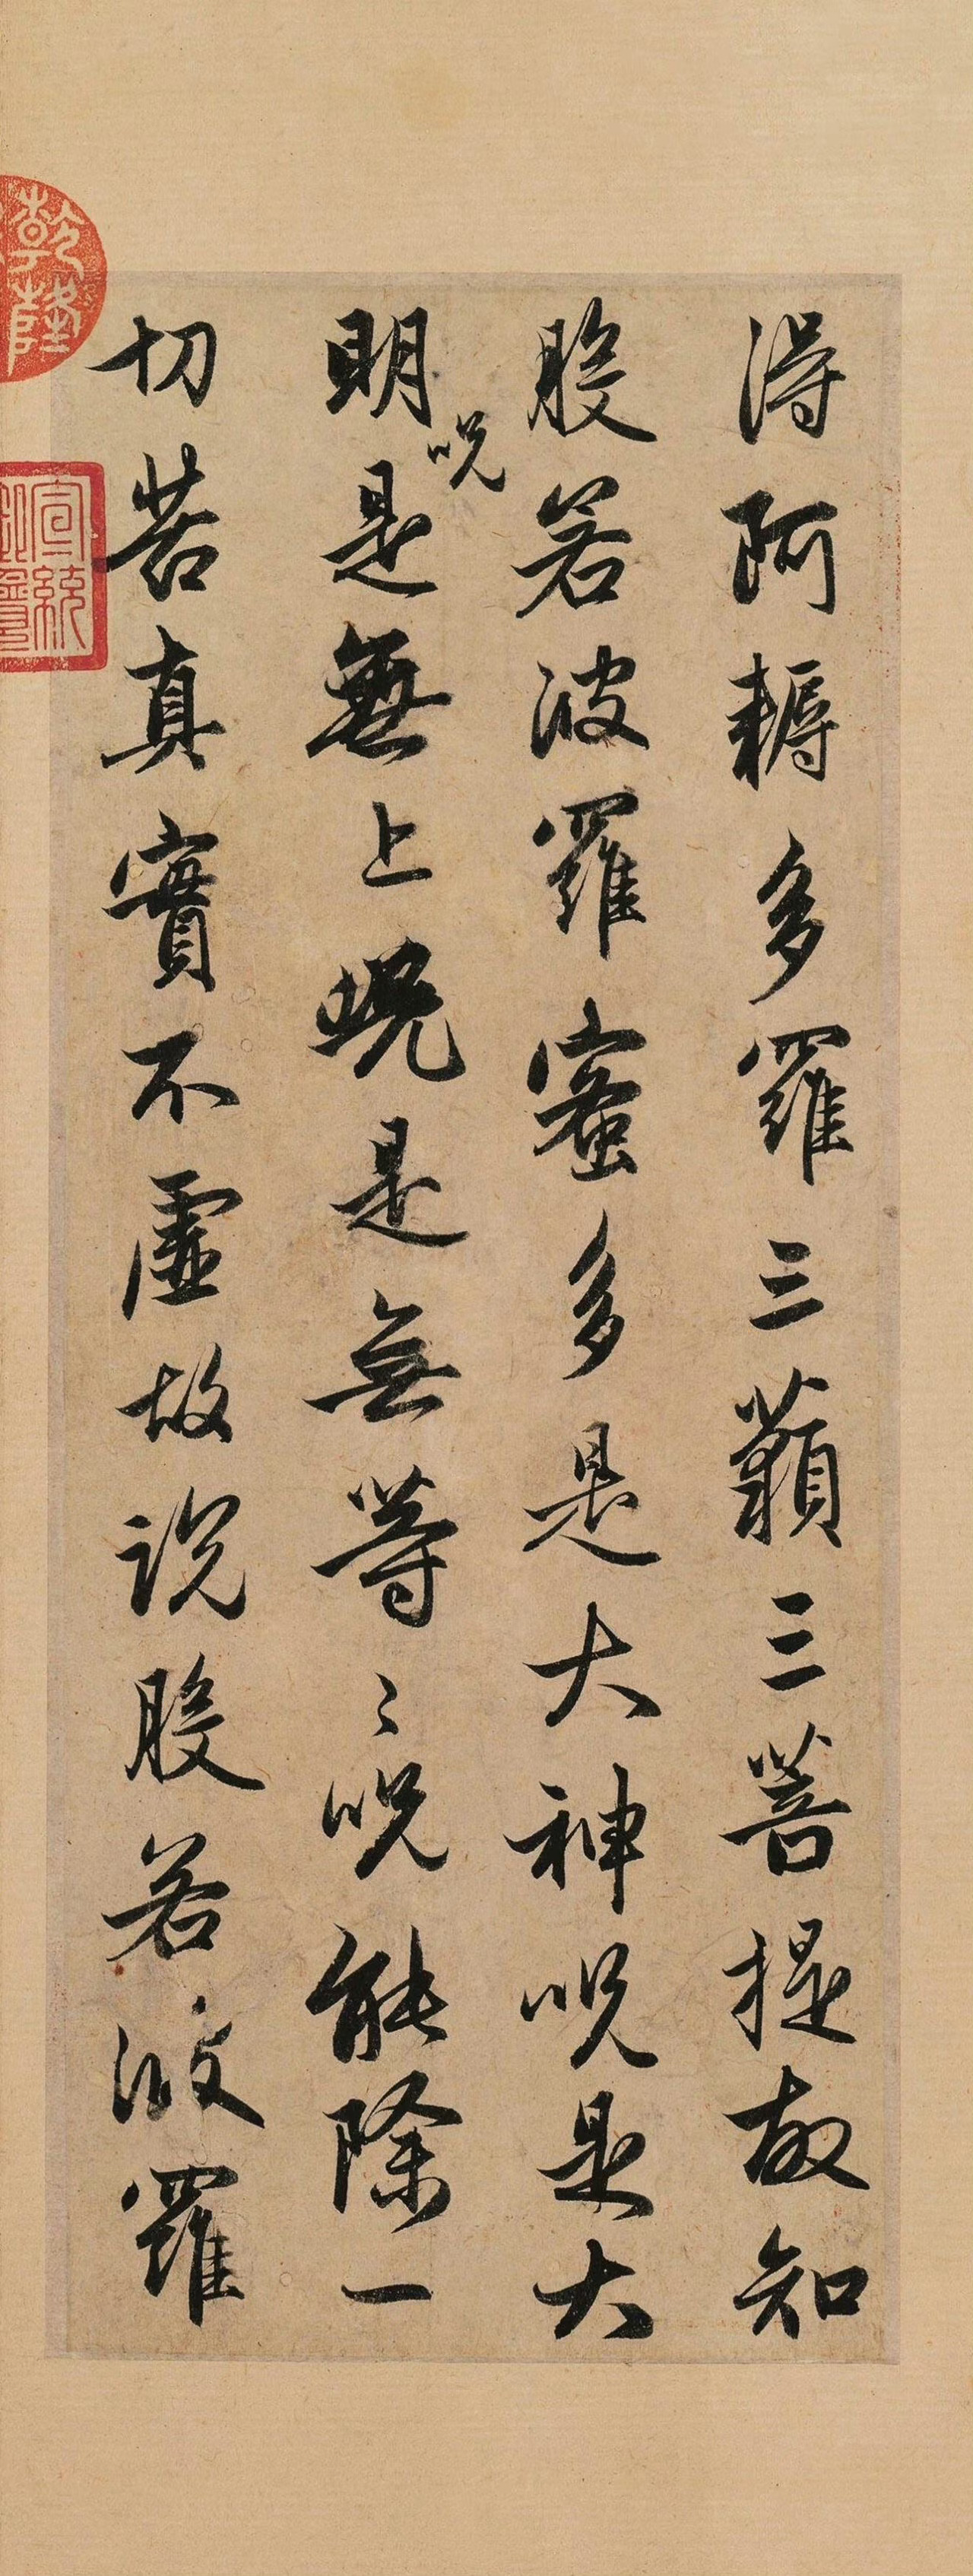 得阿耨多羅三藐三菩提故知
般若波羅蜜多是大神呪是大
明呪是無上呪是無等〻呪能除一
切苦真實不虛故説般若波羅
乾隆
宣統